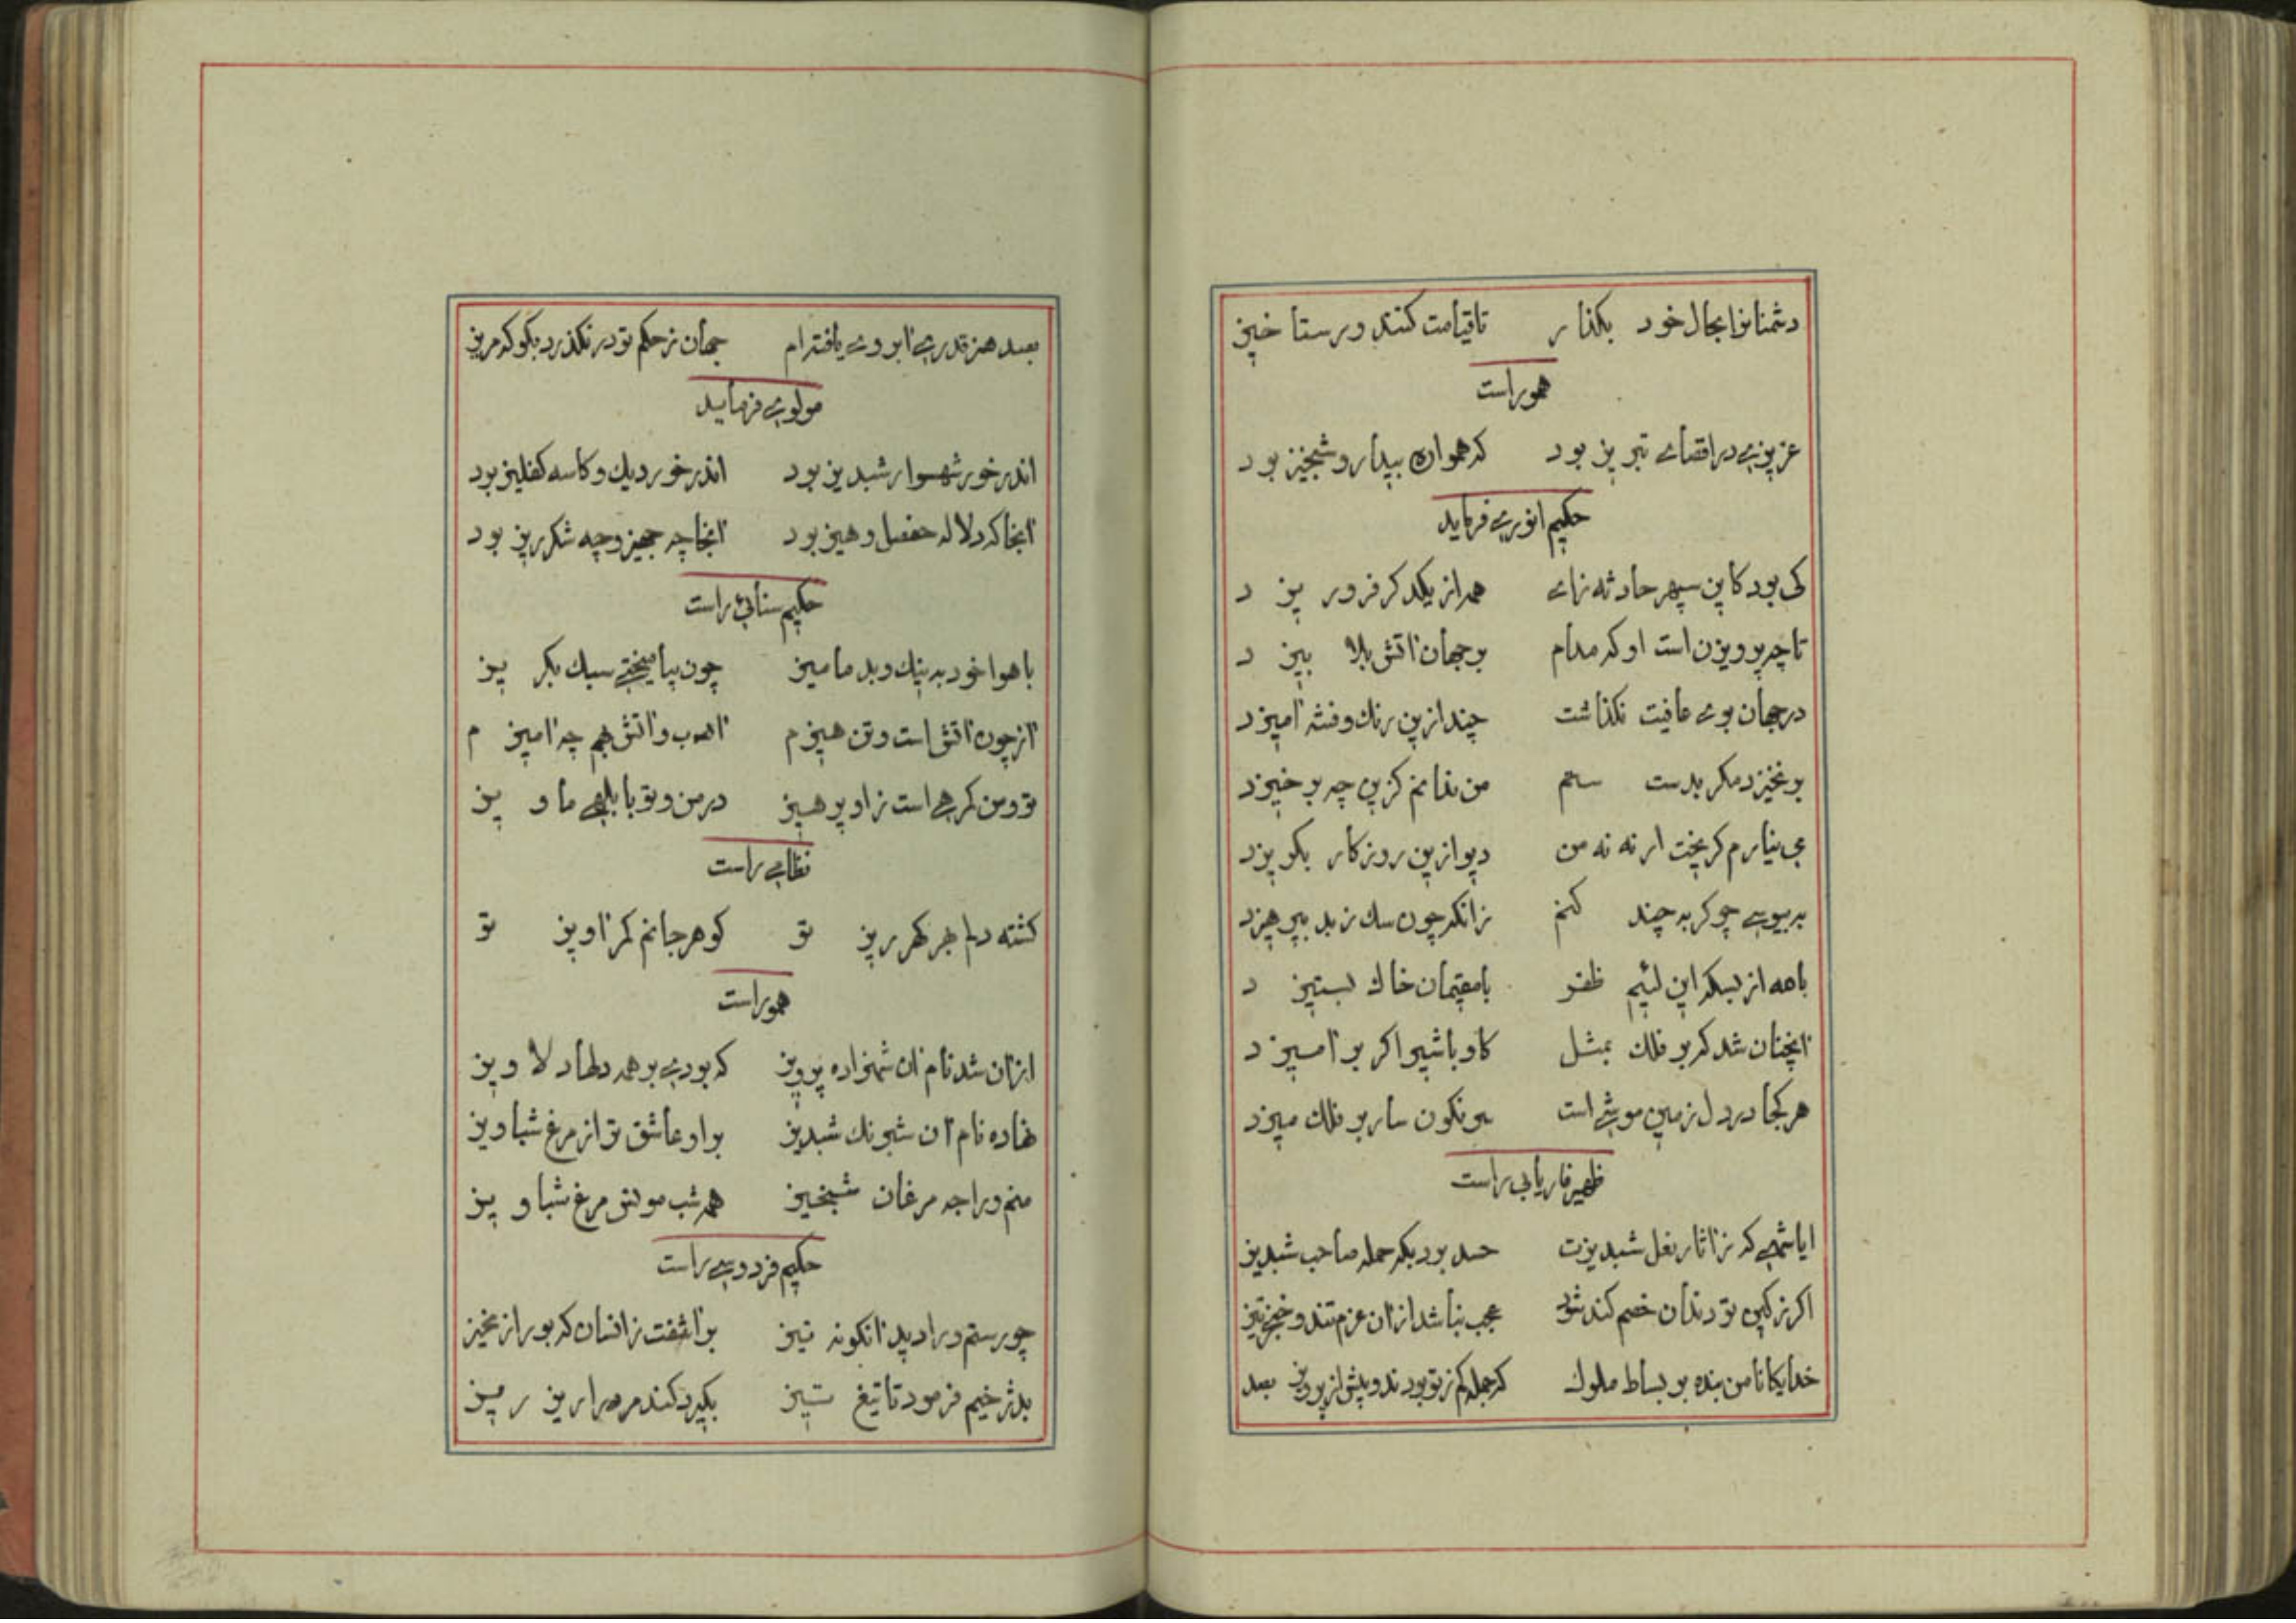 دشمنانرا بحال خود بگذار تا قیامت کنند و رستاخیز
هموراست
عزیزی در اقصای تبریز بود که همواره بیدار و شبخیز بود
حکیم انوری فرماید
کی بود کاین سپهر حادثه زای همه از یکدگر فرو ریزد
تا چه پرویزن است او که مدام بر جهان آتش بلا بیزد
در جهان بوی عافیت نگذاشت چند ازین رنگ و فتنه آمیزد
برنخیزد مگر بدست ستم من ندانم کزین چه برخیزد
می نیارم گریخت ار نه نه من دیو ازین روزگار بگریزد
به بیوسی چو گربه چند کنم زانکه چون سگ ز بد نپرهیزد
با همه از بسکه این لئیم ظفر با مقیمان خاك بستیزد
آنچنان شد که بر فلك بمثل گاو با شیر اگر برآمیزد
هر کجا در دل زمین موشی است سرنگون سار بر فلك میزد
ظهیر فاریابی راست
ایا شهی که ز آثار نعل شبدیزت حسد برد بگه حمله صاحب شبدیز
اگر ز کین تو دندان خصم کند شود عجب نباشد ازان عزم تند و خنجر تیز
خدایگانا من بنده بر بساط ملوك که جمله کم ز تو بودند و بیش از پرویز بعد
بصد هنر قدری آبروی یافته‌ام جهان ز حکم تو در نگذرد بگو که مریز
مولوی فرماید
اندر خور شهسوار شبدیز بود اندر خور دیك و کاسه کفلیز بود
آنجا که دلاله حفصل و هیز بود آنجا چه جهیز و چه شکرریز بود
حکیم سنائی راست
با هوا خود به نیك و بد مامیز چون بیامیختی سبك بگریز
آز چون آتش است و تن هیزم آب و آتش بهم چه آمیزم
تو و من کرهی است زاو پرهیز در من و تو با بلهی ماویز
نظامی راست
کشته دلم بهر گهرریز تو گوهر جانم کمرآویز تو
هموراست
ازان شد نام آن شهزاده پرویز که بودی بر همه دلها دلاویز
نهاده نام آن شبرنك شبدیز بر او عاشق تر از مرغ شباویز
منم و راجه مرغان شبخیز همه شب مونس مرغ شباویز
حکیم فردوسی راست
چو رستم ورا دید آنگونه تیز برآشفت زانسان که بر از نخیز
بدژخیم فرمود تا تیغ تیز بگیرد کند مرورا ریز ریز